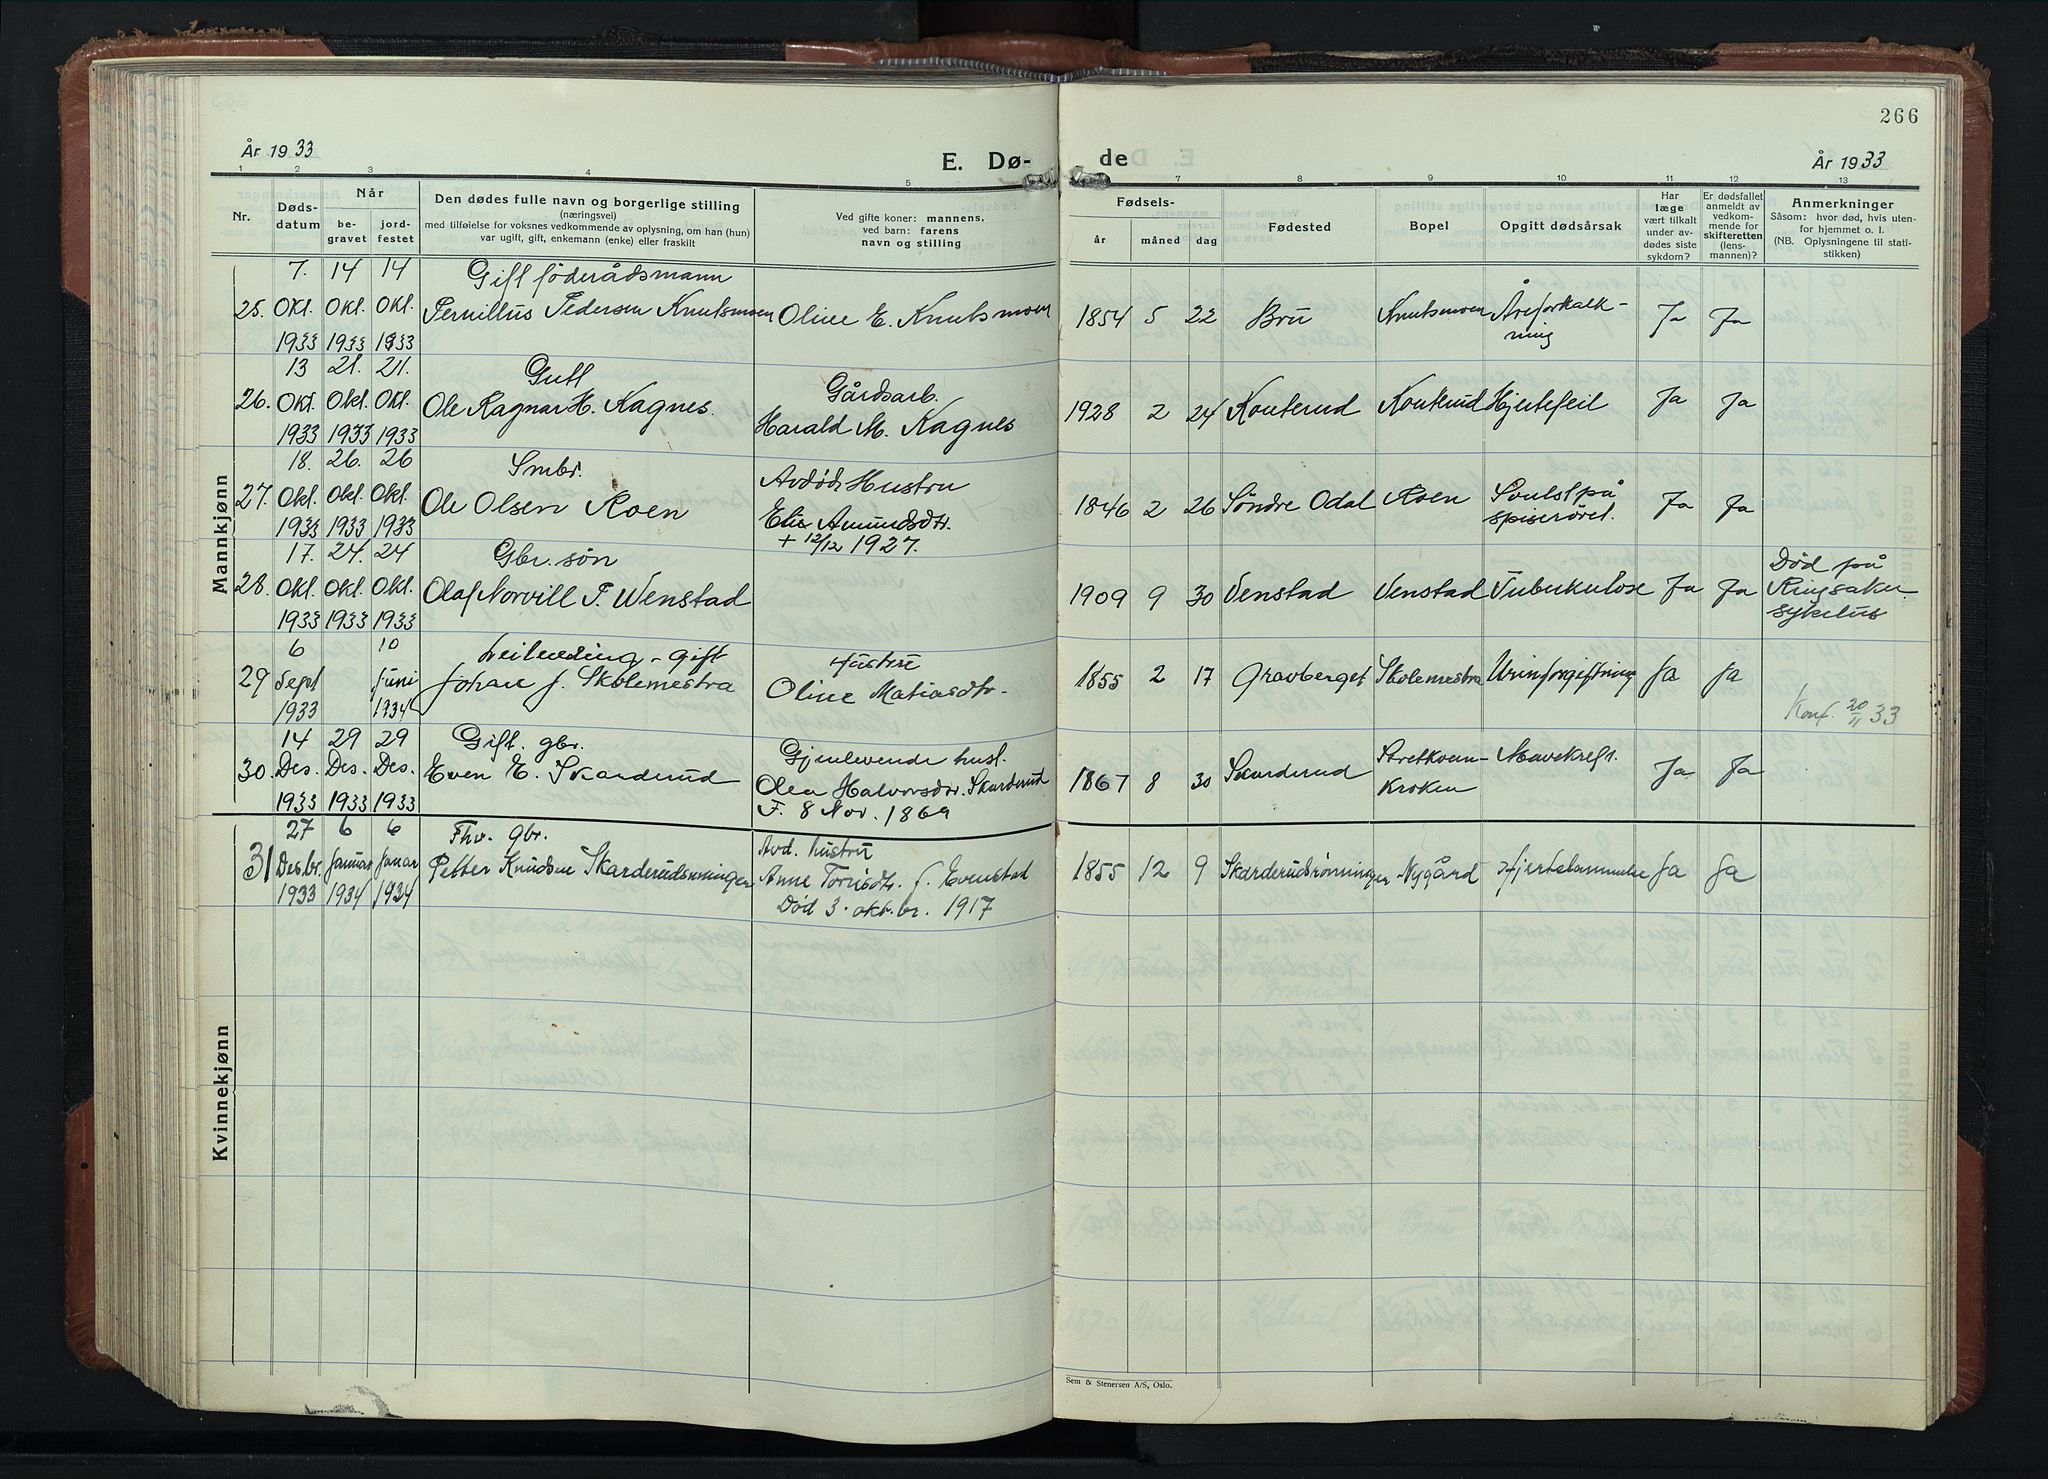 266
År 1933
E. Dø-
de
År 1933
1 2 3 4 5 7 8 9 10 11 12 13
Nr.
Døds-
datum
Når
be-
gravet
jord-
festet
Den dødes fulle navn og borgerlige stilling
(næringsvei)
med tilføielse for voksnes vedkommende av oplysning, om han (hun)
var ugift, gift, enkemann (enke) eller fraskilt
Ved gifte koner: mannens,
ved barn: farens
navn og stilling
Fødsels-
år
måned
dag
Fødested
Bopel
Opgitt dødsårsak
Har
læge
vært tilkalt
under av-
dødes siste
sykdom?
Er dødsfallet
anmeldt av
vedkom-
mende for
skifteretten
(lens-
mannen)?
Anmerkninger
Såsom: hvor død, hvis uten-
for hjemmet o. l.
(NB. Oplysningene til stati-
stikken)
Mannkjønn
7. 14 14 Gift föderådsmann
25. Okt. Okt. Okt. Pernillus Pedersen Knutsmoen Oline E. Knutsmoen 1854 5 22 Bru Knutsmoen Åreforkalk-
1933 1933 1933 ning Ja Ja
13 21. 21. Gutt Gårdsarb.
26. Okt. Okt. Okt. Ole Ragnar H. Kagnes. Harald M. Kagnes 1928 2 24 Konterud Konterud Hjertefeil Ja Ja
1933 1933 1933
18. 26. 26 Smbr. Avdød Hustru
27. Okt. Okt. Okt. Ole Olsen Roen Elie Amundsdtr. 1846 2 26 Söndre Odal Roen Svulst på
1933 1933 1933 + 12/12 1927. spiserøret. Ja Ja
17. 24. 24 Gbr. søn Død på
28. Okt. Okt. Okt. Olaf Norvill T. Wenstad 1909 9 30 Venstad Venstad Tuberkulose Ja Ja Ringsaker
1933 1933 1933 sykehus
6 10 Leilending - gift Hustru
29 Sept Juni Johan J. Skolemestra Oline Matiasdtr. 1855 2 17 Gravberget Skolemestra Urinforgiftning Ja Ja
1933 1934 Konf. 20/11 33
14 29 29 Gift. gbr. Gjenlevende hust.
30. Des. Des. Des. Even E. Skarderud Olea Halvorsdtr. Skarderud 1867 8 30 Skarderud Stretkvern- Mavekreft. Ja Ja
1933 1933 1933 F. 8 Nov. 1869 kroken
27 6 6 Fhv. gbr. Avd. hustru
31 Desbr. Januar Januar Petter Knudsen Anne Torrisdtr. f. Evenstad 1855 12 9 Skarderudsrønningen Nygård Hjertelammelse Ja Ja
1933 1934 1934 Død 3. oktbr. 1917
Kvinnekjønn
Sem & Stenersen A/S, Oslo.